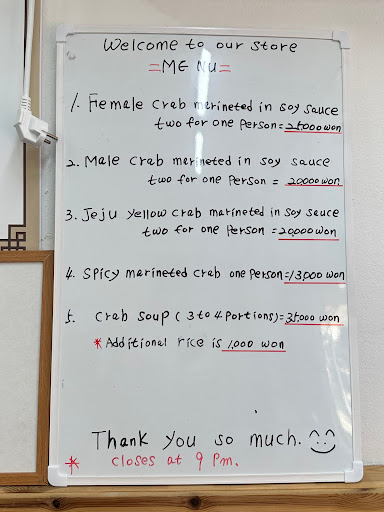 Welcome to our store
=MENU=
1. Female crab marineted in soy sauce
two for one person=25,000won
2. Male crab marineted in soy sauce
two for one person = 20,000won
3. Jeju yellow crab marineted in soy sauce
two for one person =20,000won
4. Spicy marineted crab one person=13,000won
5. crab soup (3 to 4 portions)=35,000won
*Additional rice is 1,000 won
Thank you so much.
* closes at 9 Pm.